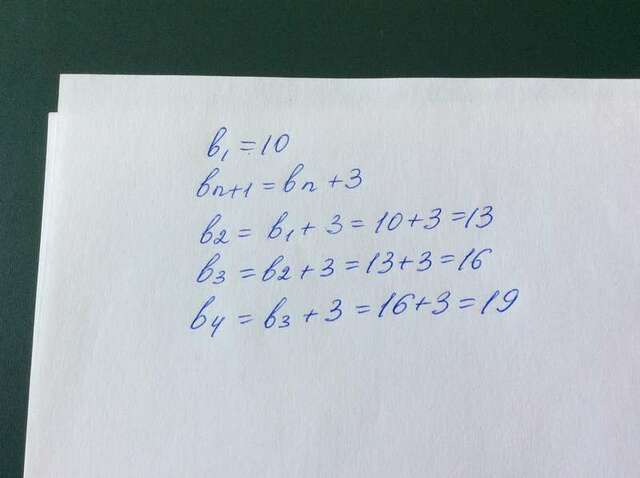 b₁ = 10
bₙ₊₁ = bₙ + 3
b₂ = b₁ + 3 = 10 + 3 = 13
b₃ = b₂ + 3 = 13 + 3 = 16
b₄ = b₃ + 3 = 16 + 3 = 19